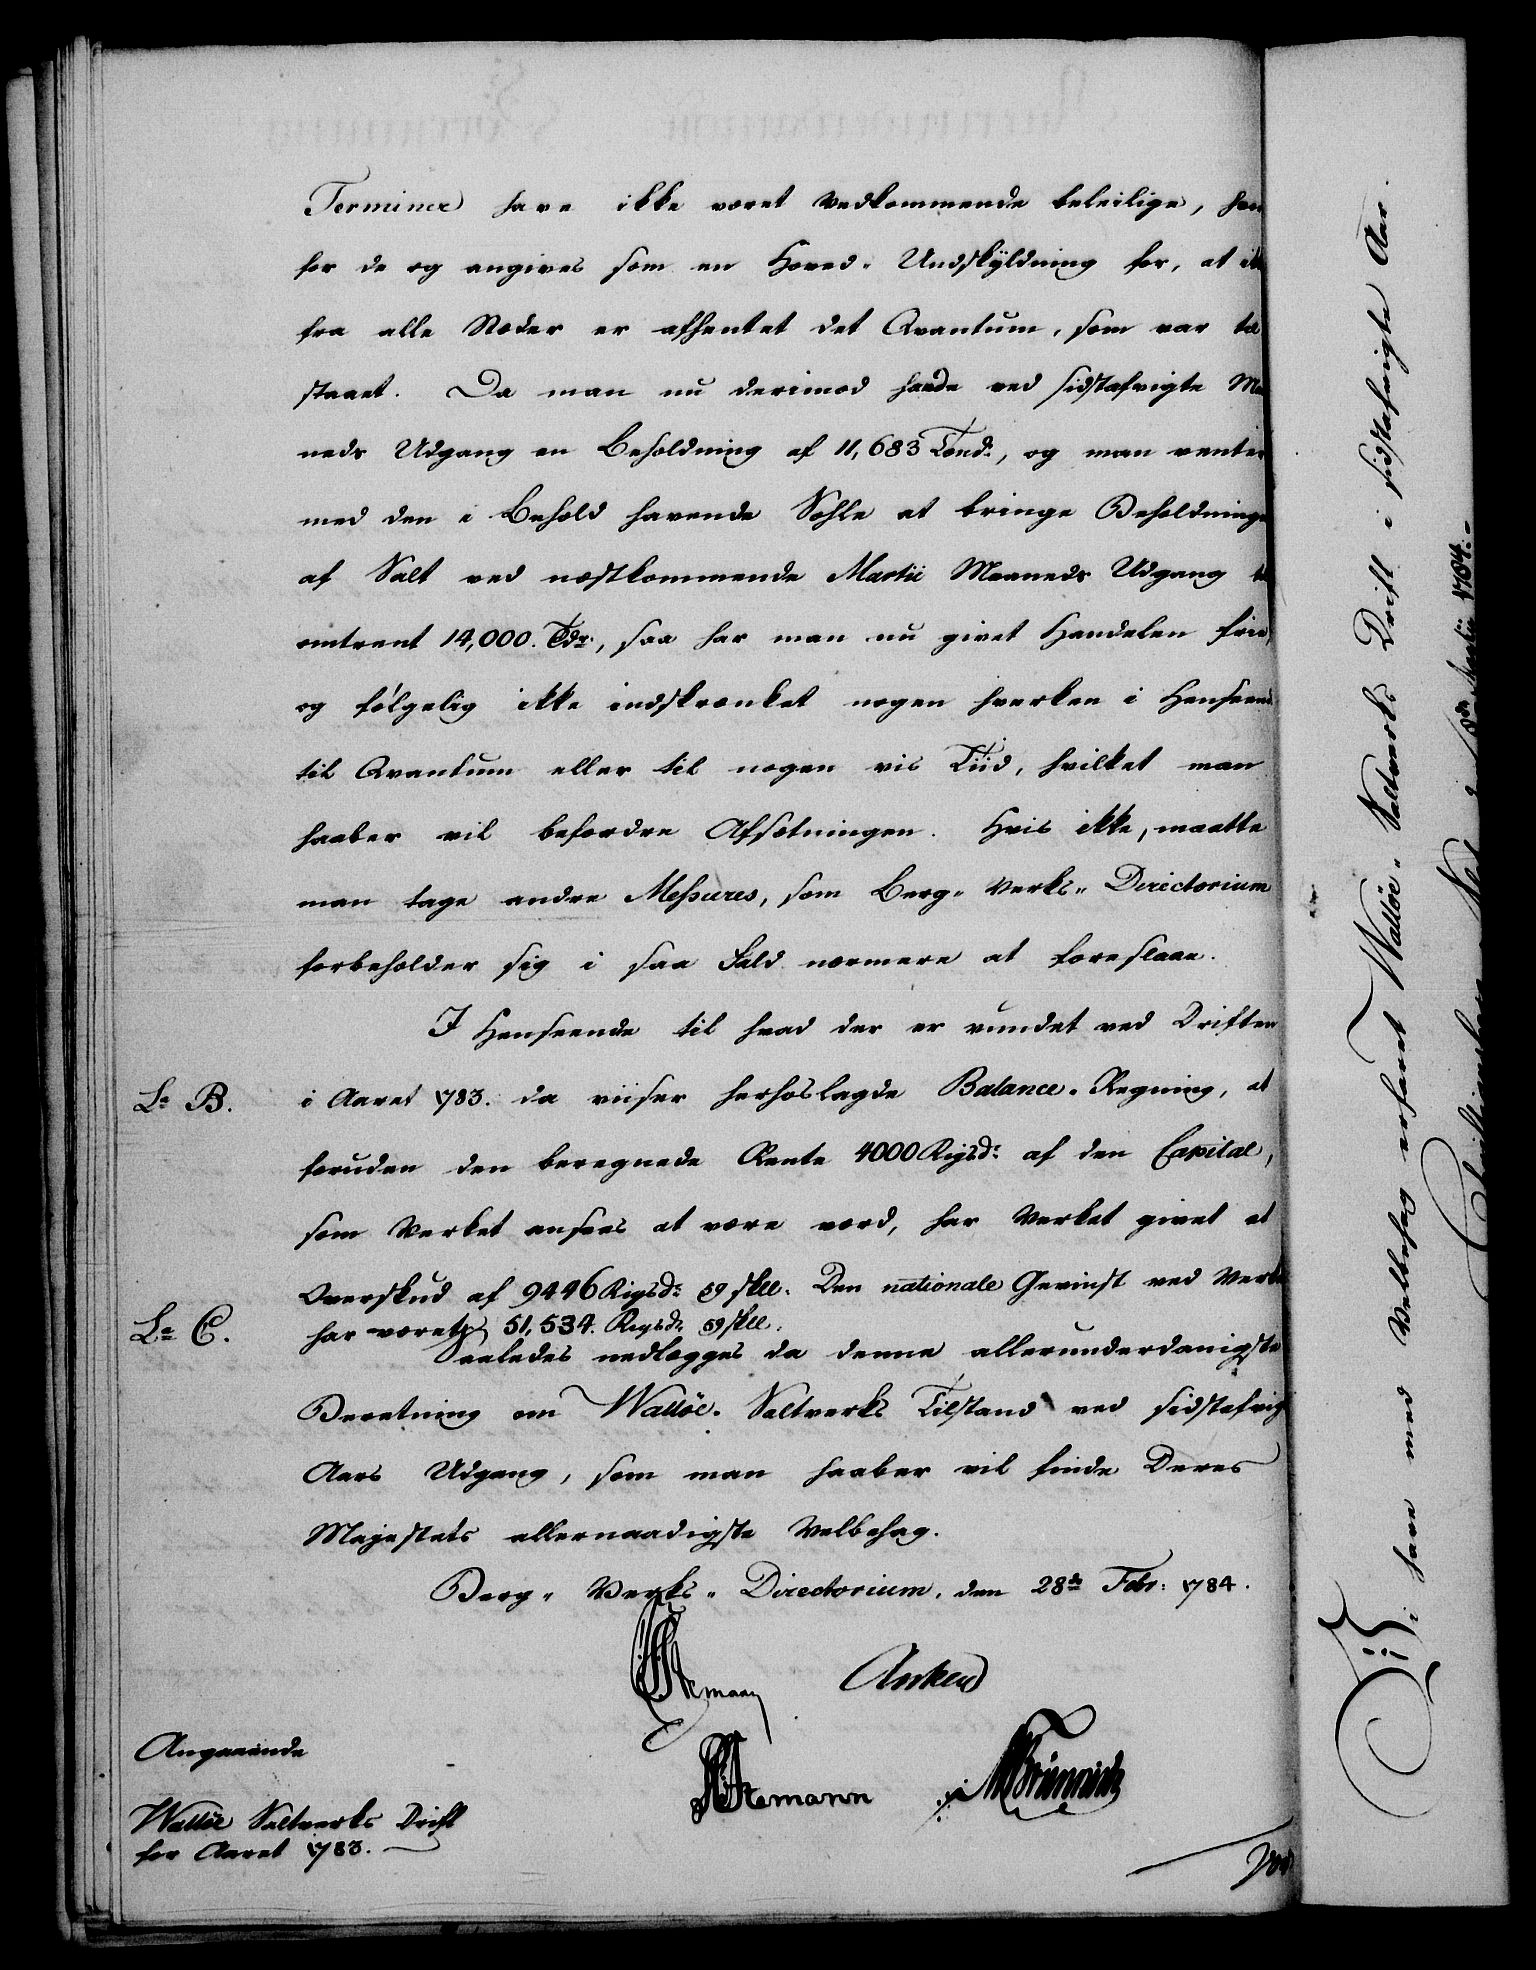 Terminer have ikke været Vedkommende beleilige, hvor
for de og angives som en Hoved-Undskyldning for, at ikke
fra alle Stæder er afhentet det Qvantum, som var til
staaet. Da man nu derimod havde ved sidstafvigte Maa
neds Udgang en Beholdning af 11,683 Tønd:, og man venter
med den i Behold havende Sohle at bringe Beholdningen
af Salt ved næstkommende Martii Maaneds Udgang til
omtrent 14,000. Tdr:, saa har man nu givet Handelen frie,
og følgelig ikke indskrænket nogen hverken i Henseende
til Qvantum eller til nogen vis Tiid, hvilket man
haaber vil befordre Afsætningen. Hvis ikke, maatte
man tage andre Messures, som Berg-Verks-Directorium
forbeholder sig i saa Fald nærmere at foreslaae.
I Henseende til hvad der er vundet ved Driften
Lr B. i Aaret 1783. da viiser herhoslagde Balance-Regning, at
foruden den beregnede Rente 4000 Rigsdr af den Capital,
som Verket ansees at være værd, har Verket givet et
Overskud af 9446 Rigsdr 59 skll. Den nationale Gevinst ved Verket
Lr C. har været 51,534. Rigsdr 59 skll.
Saaledes nedlægges da denne allerunderdanigste
Beretning om Walløe-Saltverks Tilstand ved sidstafvig
Aars Udgang, som man haaber vil finde Deres
Majestæts allernaadigste Velbehag.
Berg-Verks-Directorium, den 28de Febr: 1784.
Anker
MBrünnich
Angaaende
Walløe Saltverks Drift
for Aaret 1783.
Vi have med Velbehag erfaret Walløe-Saltverks Drift i sidstafvigte Aar.
Christiansborg Slot den 8de Martii 1784.